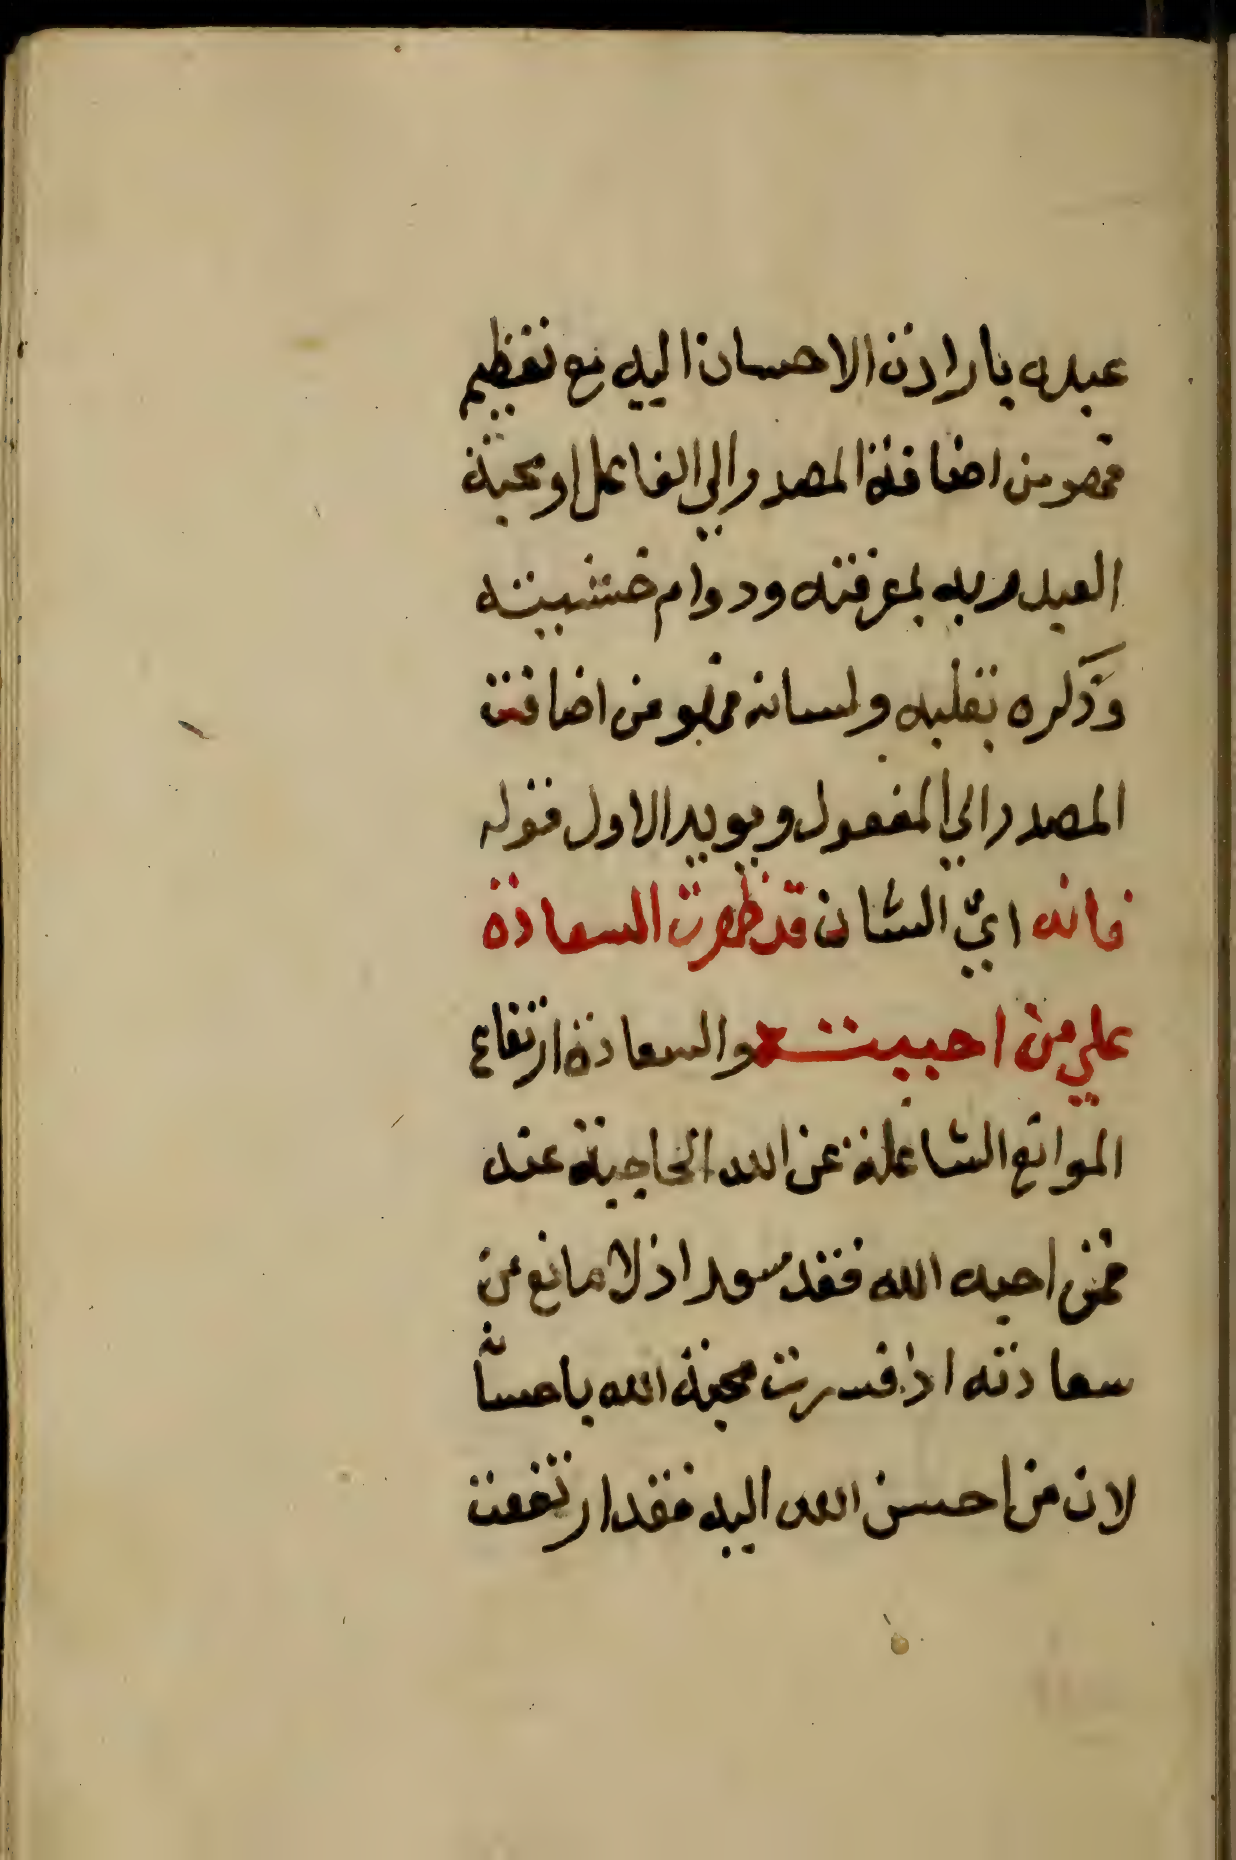 عبده بارادة الاحسان اليه مع تعظيم
فهو من اضافة المصدر الي الفاعل او محبة
العبد ربه بمعرفته ودوام خشيته
وذكره بقلبه ولسانه فهو من اضافت
المصدر الي المفعول ويويد الاول قوله
فانه اي الشان قد ظهرت السعادة
علي من احببته والسعادة ارتفاع
الموانع الشاغلة عن الله الحاجبة عنه
فمن احبه الله فقد سعد اذ لا مانع من
سعادته اذ فسرت محبة الله باحسانه
لان من احسن الله اليه فقد ارتفعت